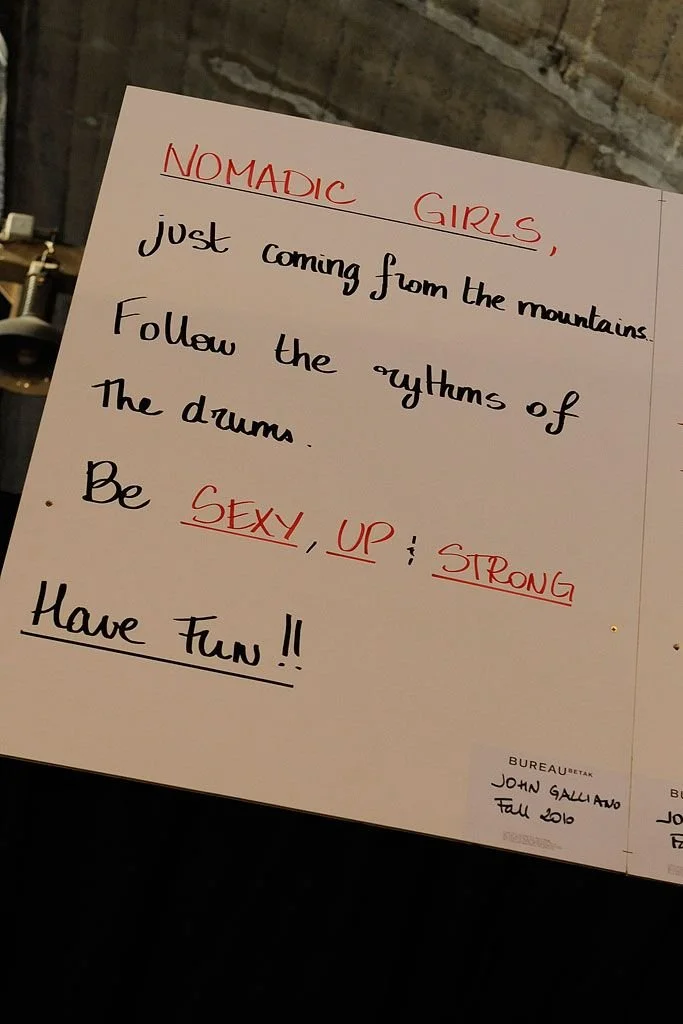 NOMADIC GIRLS,
just coming from the mountains..
Follow the rythms of
the drums.
Be SEXY, UP & STRONG
Have Fun !!
BUREAU BETAK
JOHN GALLIANO
Fall 2010
BU
JO
Fa